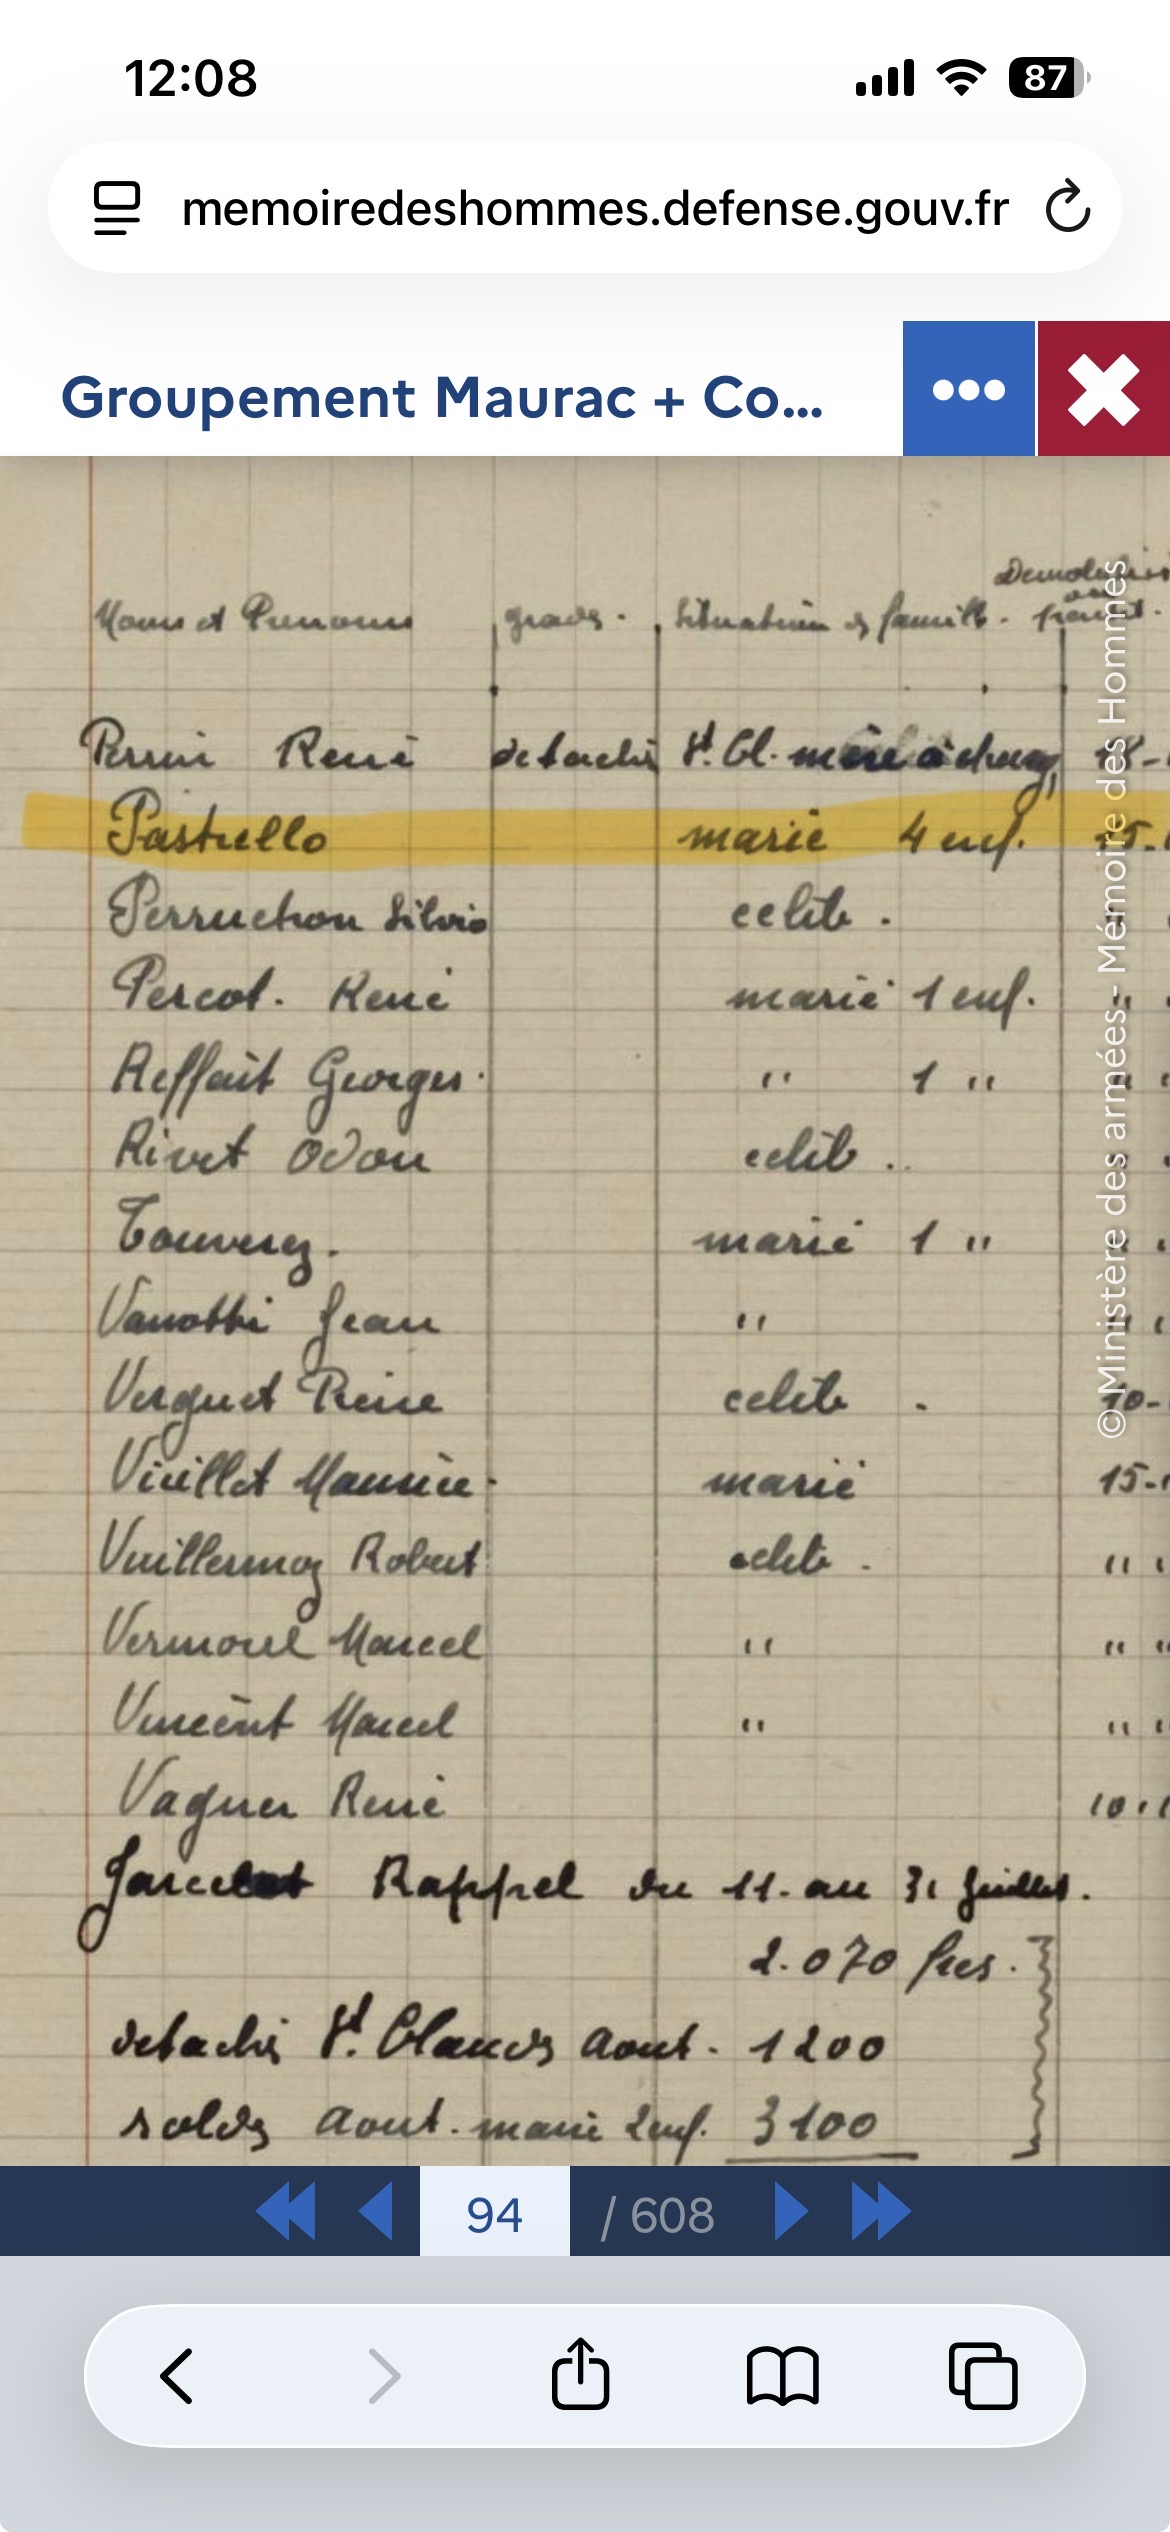 12:08
87
memoiredeshommes.defense.gouv.fr
Groupement Maurac + Co...
Noms et Prenoms grade. Situation de famille.
Perrin René detaché St. Cl. mère à charge 18-
Pastrello marié 4 enf. 15-
Perruchon Silvio celib.
Percot. René marié 1 enf.
Reffait Georges. " 1 "
Rivet Odon celib..
Touverez. marié 1 "
Vanotti Jean "
Verguet Reine celib. 10-
Vieillet Maurice. marié 15-
Vuillermoz Robert celib. "
Vermorel Marcel " " "
Vincent Marcel " " "
Vagner René 10.
Rappel du 11. au 31 Juillet.
2.070 frcs.
detaché St. Claude Aout. 1200
solde Aout. marié 2 enf. 3100
© Ministère des armées - Mémoire des Hommes
94 / 608